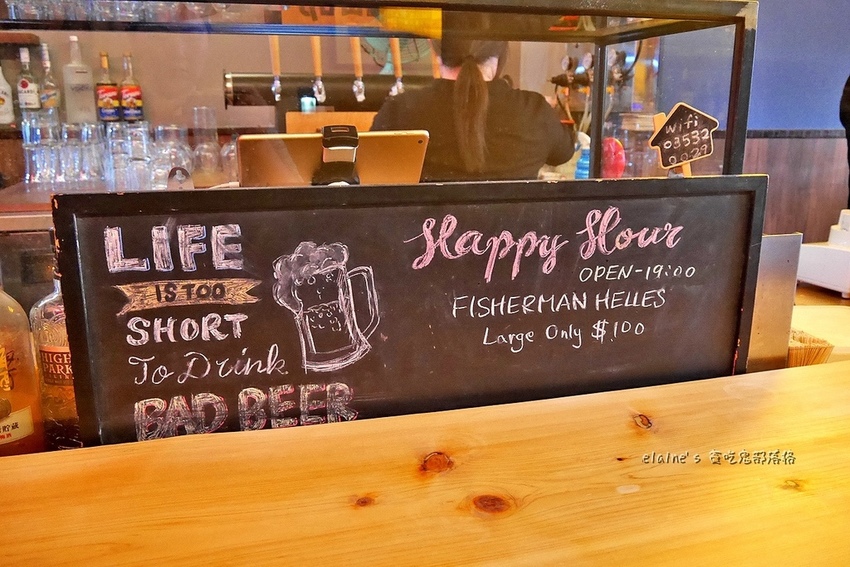 wifi
03532
0029
LIFE
IS TOO
SHORT
To Drink
BAD BEER
Happy Hour
OPEN-19:00
FISHERMAN HELLES
Large Only $100
HIGH
PARK
貯蔵
elaine's 貪吃鬼部落格